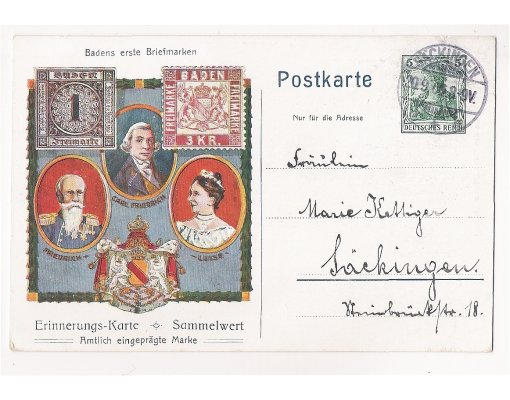 Badens erste Briefmarken
BADEN
1
Freimarke
BADEN
FREIMARKE
FREIMARKE
3 KR.
CARL FRIEDRICH
FRIEDRICH
LUISE
Erinnerungs-Karte Sammelwert
Amtlich eingeprägte Marke
Postkarte
Nur für die Adresse
5 5
DEUTSCHES REICH
SÄCKINGEN
Fräulein
Marie Kettiger
Säckingen.
Steinbrückstr. 18.